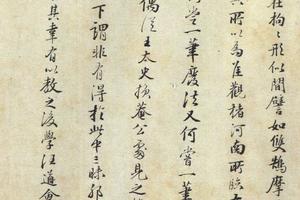 在拘〻形似間譬如雙鵠摩
其所以為佳觀褚河南所臨
嘗一筆廢法又何嘗一筆
偶從王太史損菴公處見之
下謂非有得於此中三昧耶
其幸有以教之後學汪道會